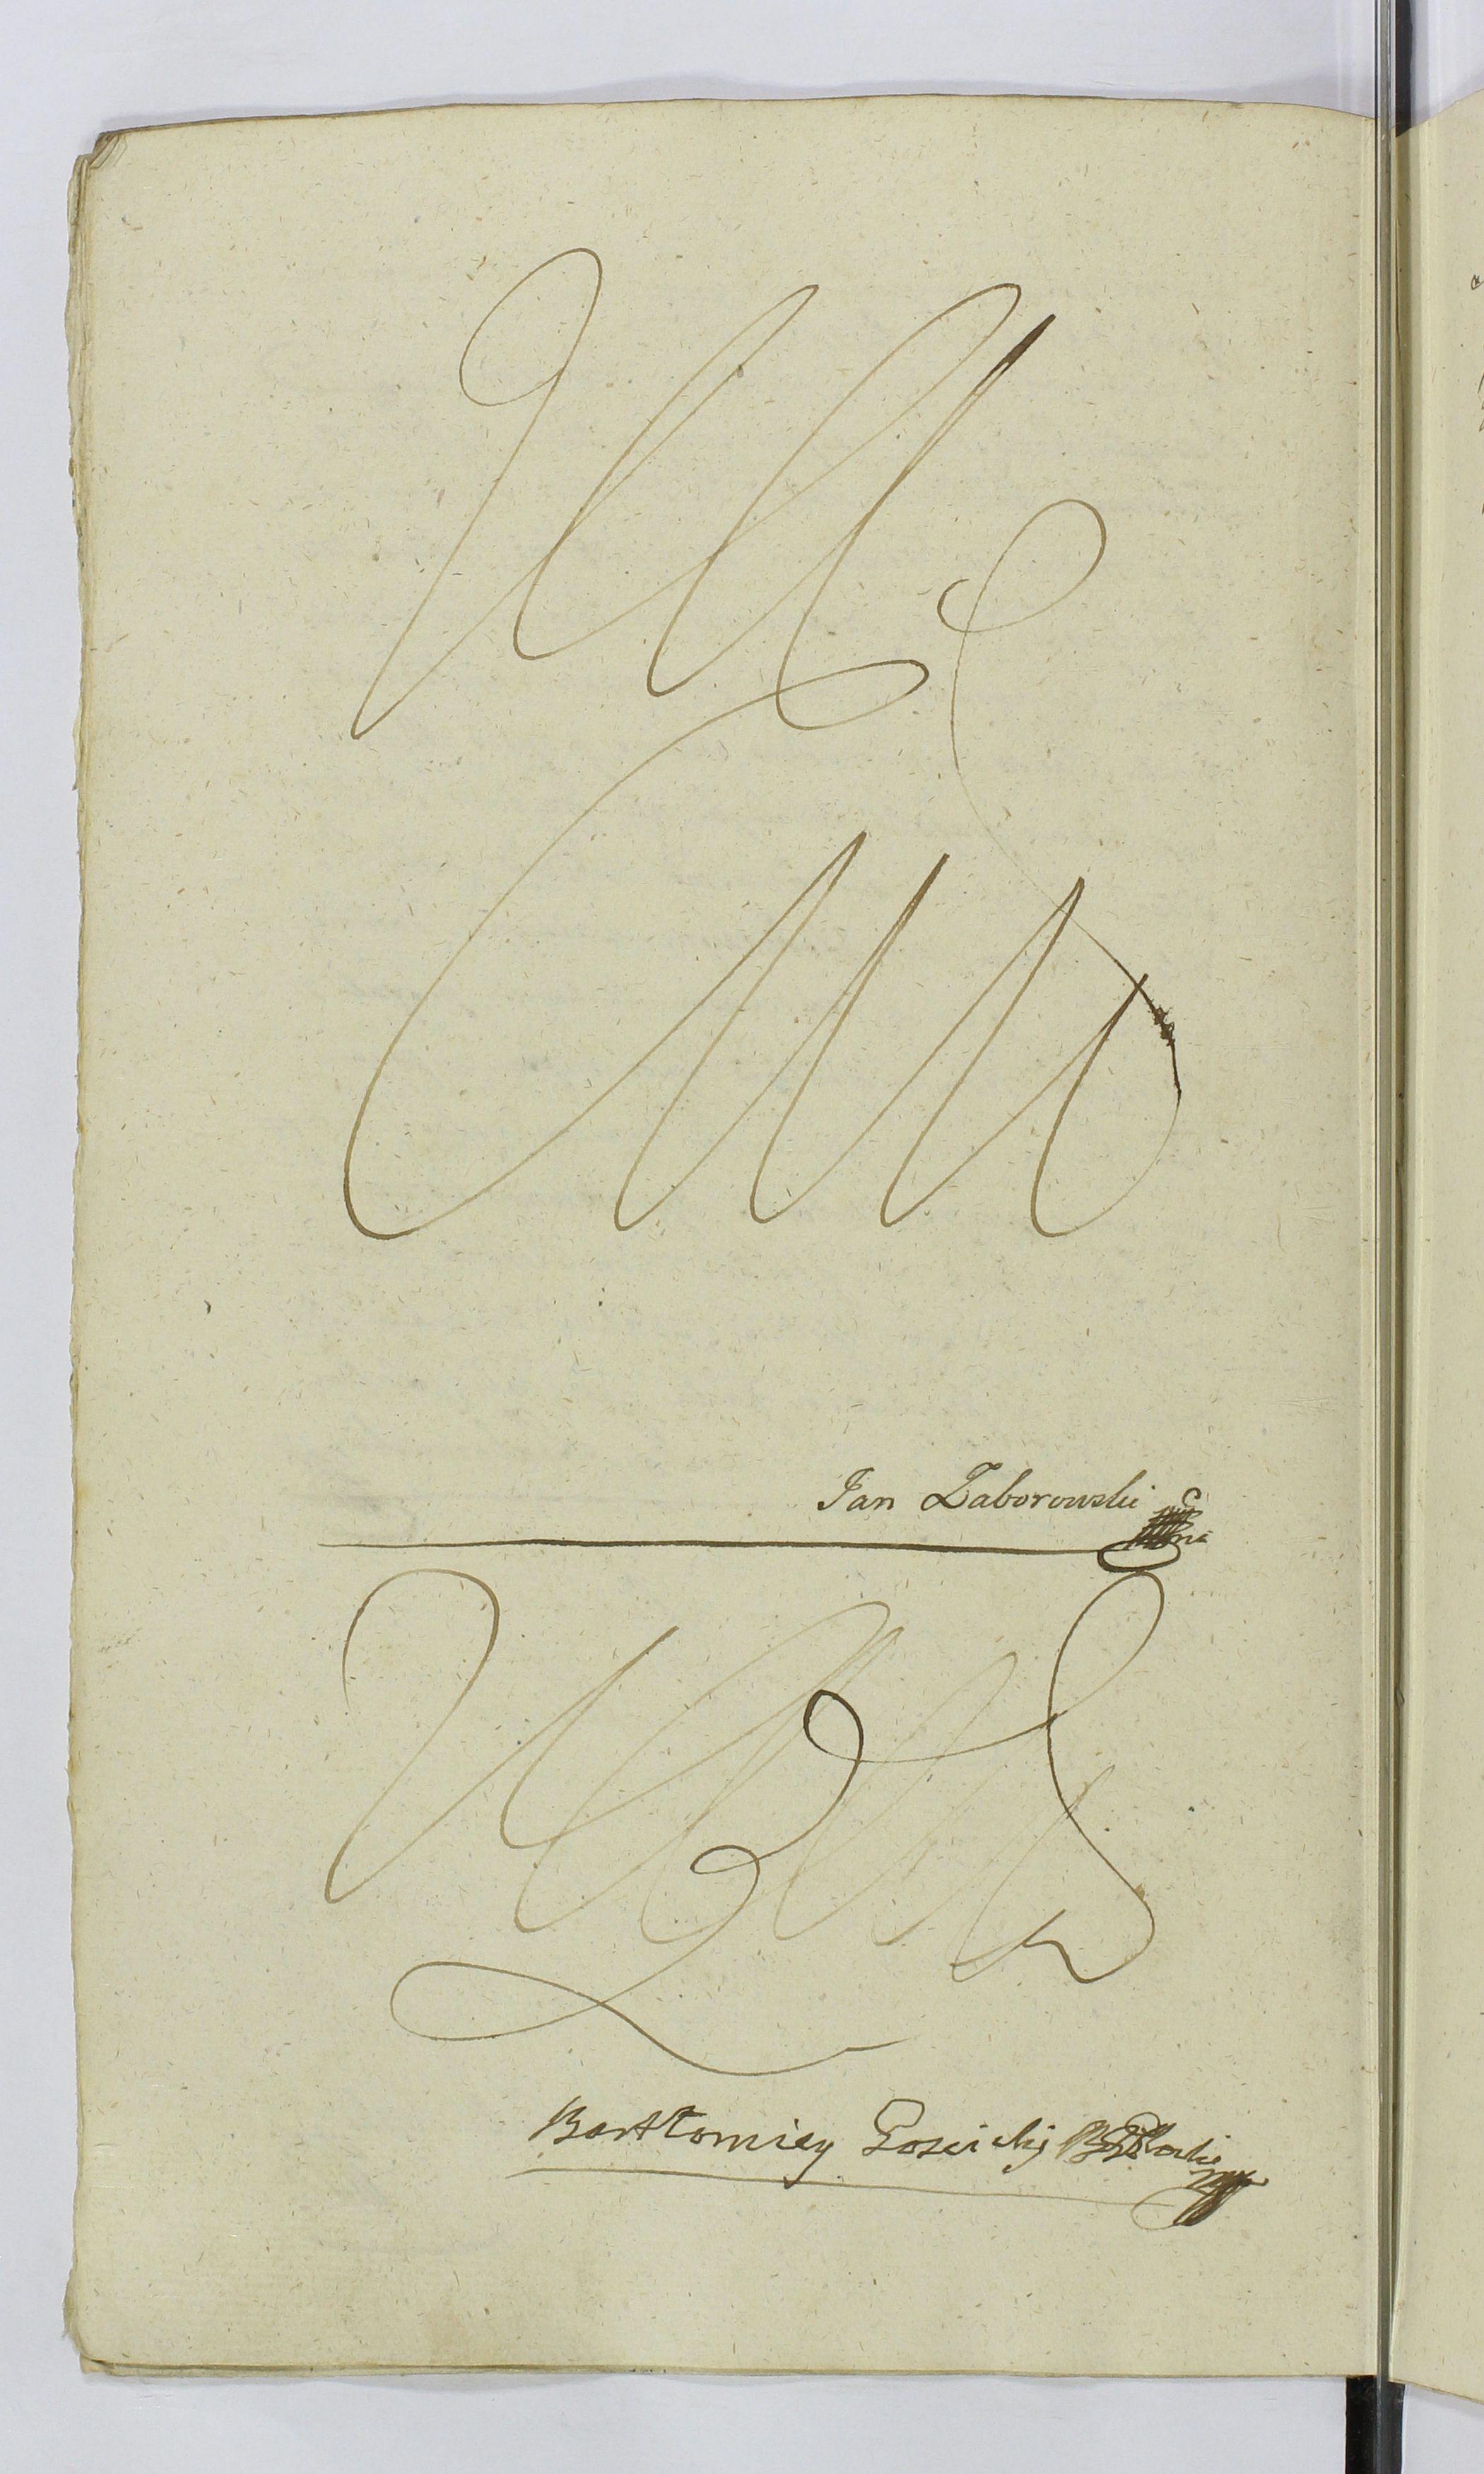 Jan Zaborowski
Bartłomiey Goscicky